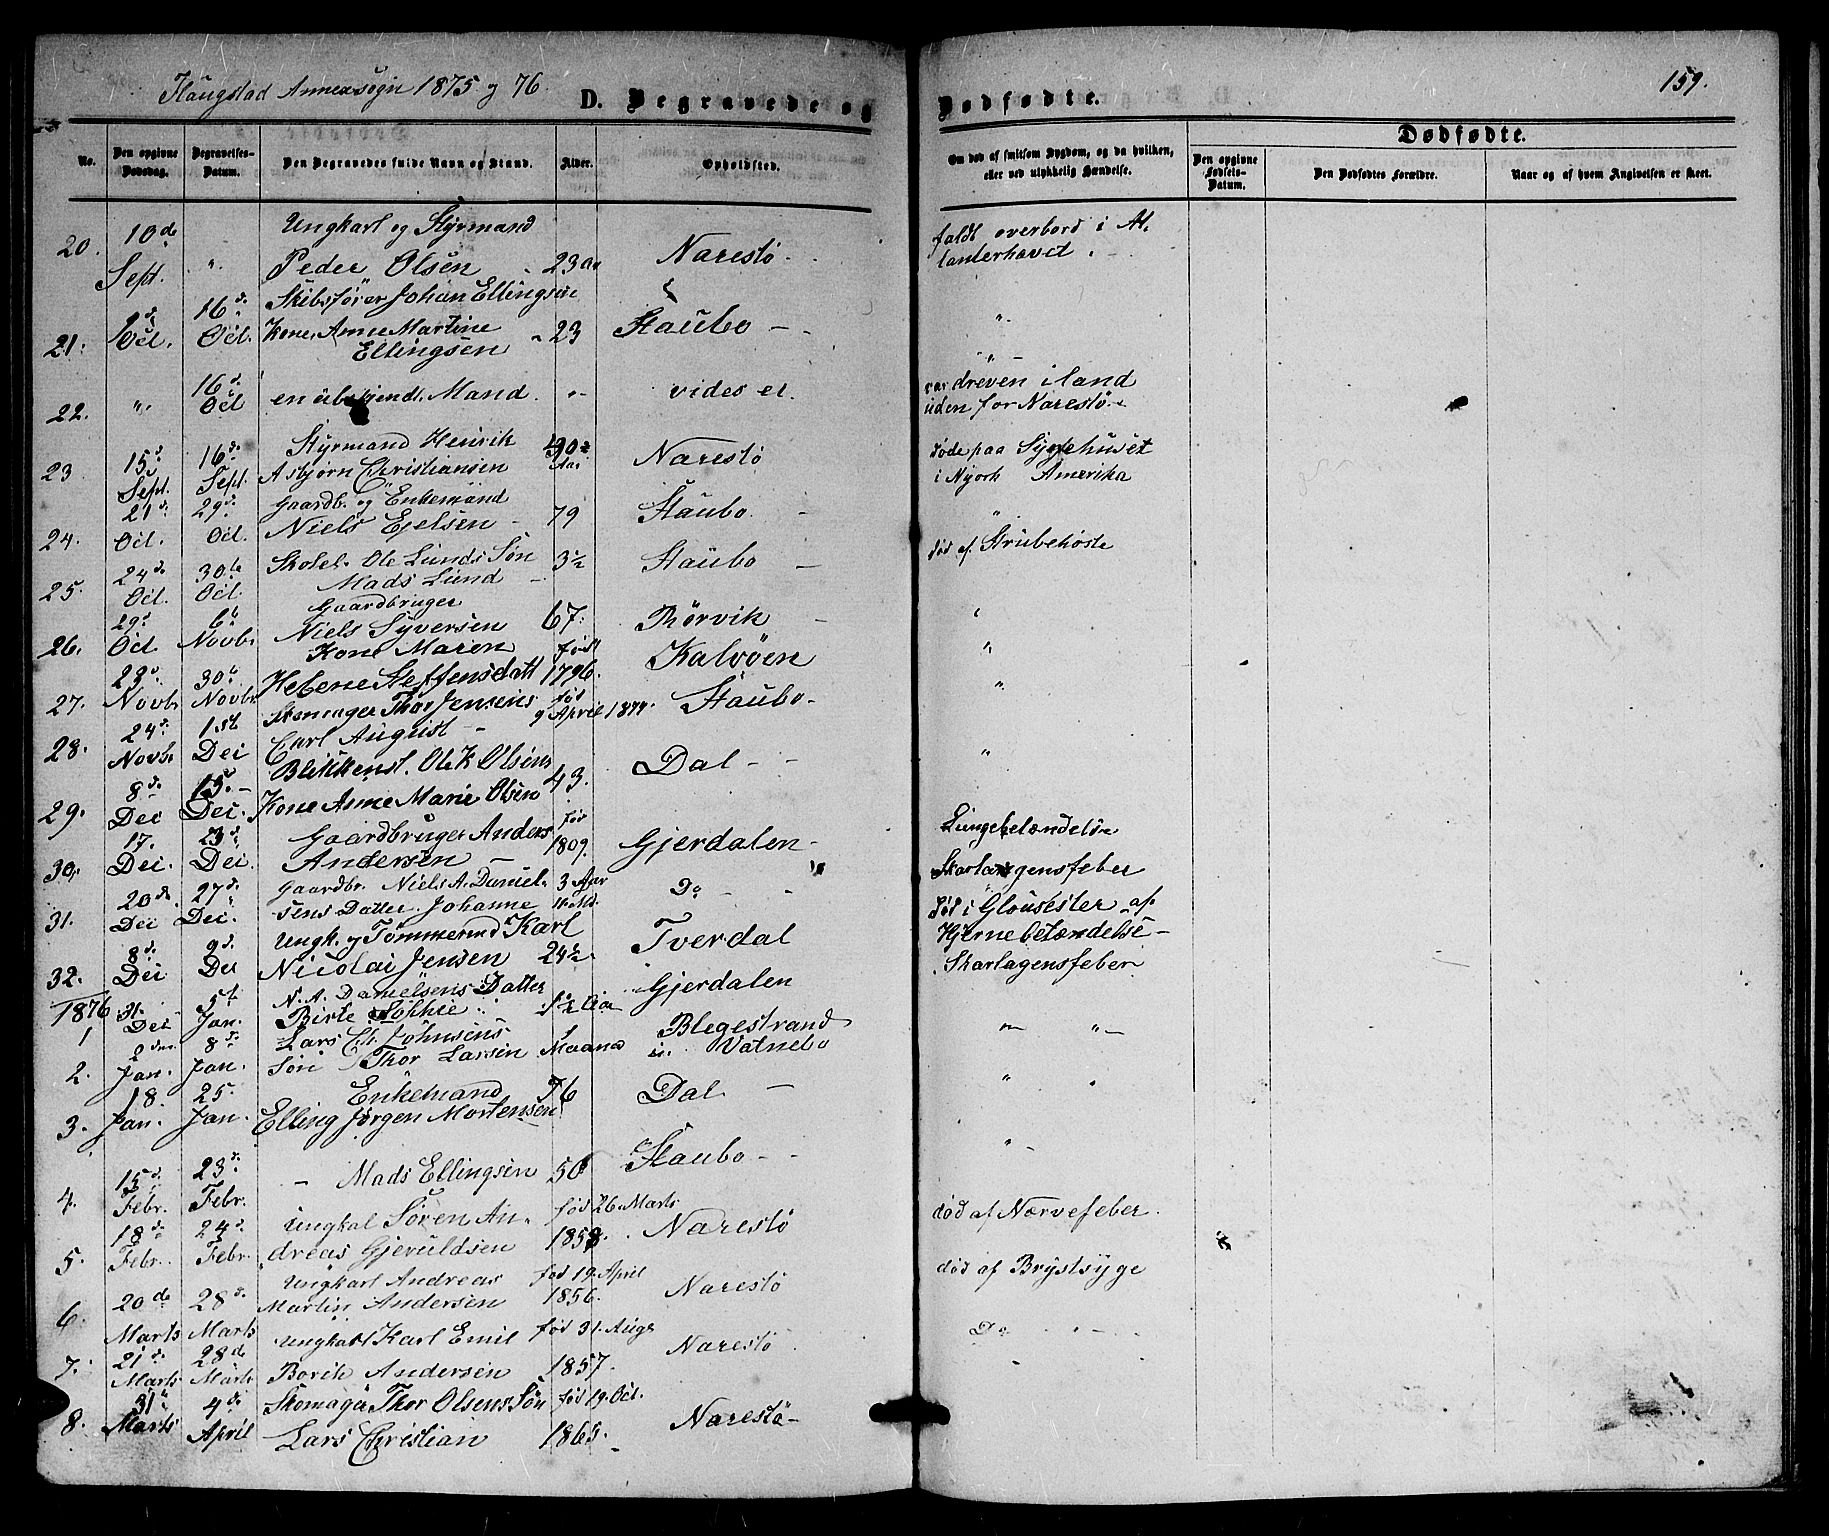 Flaugstad Annexsogn 1875 og 76.
D. Begravede og Dødfødte.
159.
No.
Den opgivne Dødsdag.
Begravelses-Datum.
Den Begravedes fulde Navn og Stand.
Alder.
Opholdsted.
Om død af smitsom Sygdom, og da hvilken, eller ved ulykkelig Hændelse.
Dødfødte.
Den opgivne Fødsels-Datum.
Den Dødfødtes Forældre.
Naar og af hvem Angivelsen er skeet.
20. 10de Sept. " Ungkarl og Styrmand Peder Olsen 23 Narestö faldt overbord i Atlanterhavet.
21. Oct. 16d. Oct. Skibsfører Johan Ellingsens Kone, Anne Martine Ellingsen 23 Staubo "
22. " 16d. Oct en ubekjendt Mand. " vides ei. var dreven iland uden for Narestö
23 15d. Sept. 16d. Sept. Styrmand Henrik Asbjørn Christiansen Aar Narestö døde paa Sygehuset i Nyork Amerika
24. 21d. Oct. 29d. Oct. Gaardbr. og Enkemand Niels Ejelsen 79 Staubo "
25. 24d. Oct. 30te Oct. Skolel. Ole Lunds Søn Mads Lund 3½ Staubo død af Strubehoste
26. 29d. Oct. 6te Novbr. Gaardbruger Niels Syversen 67. Börvik "
27. 23d. Novbr. 30te Novbr. Kone Maren Helene Steffensdatt født 1796. Kalvöen "
28. 24d. Novbr. 1ste Dec Skomager Thor Jensens Carl August fød 9 April 1874. Staubo "
29. 8d. Dec 15. Dec. Blikkensl. Ole K Olsens Kone Anne Marie Olsen 43. Dal "
30. 17. Dec. 23d. Dec Gaardbruger Anders Andersen fød 1809. Gjerdalen Lungebetændelse
31. 20de Dec 27d. Dec. Gaardbr. Niels A. Danielsens Datter Johanne 3 Aar 11 Md. Do Skarlagensfeber
32. 8d. Dec 9d. Dec Ungk. og Tømmermd Karl Nicolai Jensen 24½ Tverdal død i Glousester af Hjernebetændelse
1876
1 31. Dec 5te Jan. N. A. Danielsens Datter Birte Sophie 1½ Aar Gjerdalen Skarlagensfeber
2. 2den Jan. 8d. Jan. Lars Ch. Johnsens Søn Thor Larsen 1 Maaned Blegestrand u. Vatnebo " "
3. 18. Jan. 25. Jan. Enkemand Elling Jørgen Mortensen 76 Dal "
4. 15d. Febr. 23d. Febr. Mads Ellingsen 50 Staubo "
5. 18d. Febr. 24d. Febr. Ungkal Søren Andreas Gjeruldsen fød 26. Marts 1858. Narestö død af Nærvefeber.
6. 20de Marts 28d. Marts Ungkarl Andreas Martin Andersen fød 19. April 1856. Narestö død af Brystsyge
7. 21d. Marts 28de Marts Ungkarl Karl Emil Borik Andersen fød 31. Aug 1857. Narestö Do "
8. 31te Marts 4d. April Skomager Thor Olsens Søn Lars Christian fød 19. Oct. 1865. Narestö